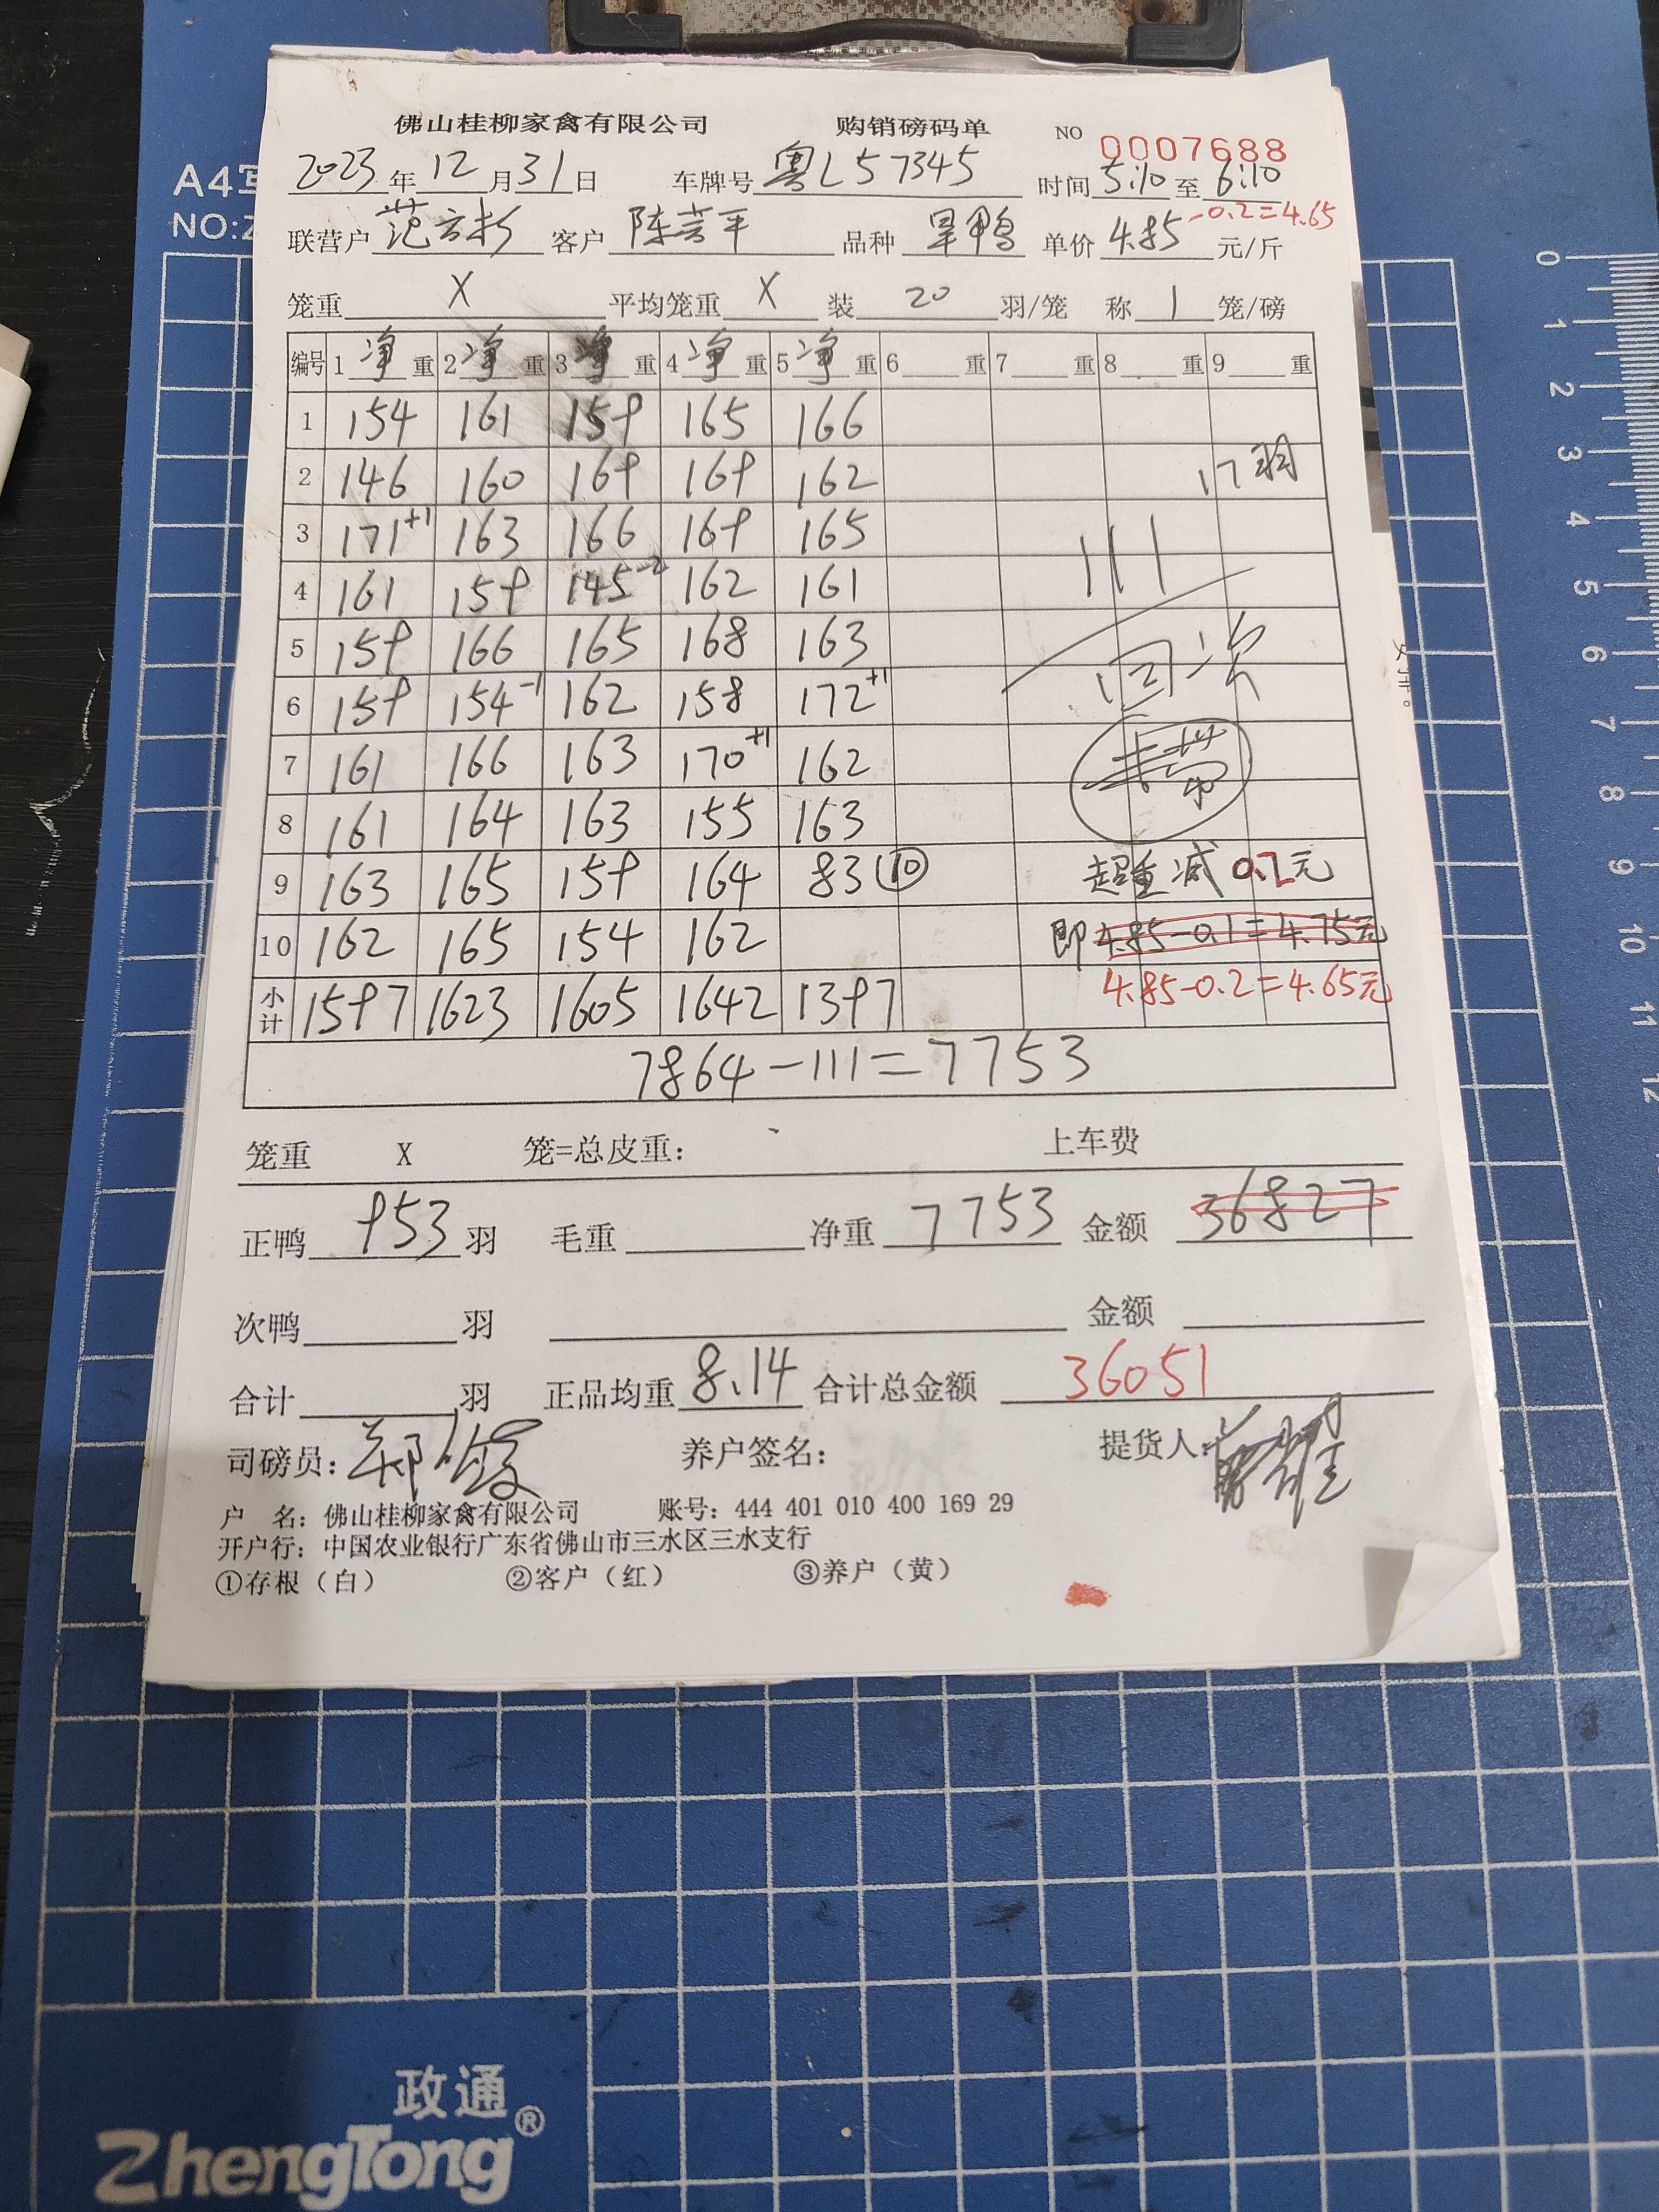 A4
NO:
佛山桂柳家禽有限公司 购销磅码单 NO 0007688
2023年12月31日 车牌号 粤L57345 时间 5:10 至 6:10
联营户 客户 陈芳平 品种 旱鸭 单价 4.85 元/斤 -0.2=4.65
笼重 X 平均笼重 X 装 20 羽/笼 称 1 笼/磅
编号 1 净 重 2 净 重 3 净 重 4 净 重 5 净 重 6 重 7 重 8 重 9 重
1 154 161 159 165 166
2 146 160 169 169 162 17羽
3 171+1 163 166 169 165 111
4 161 159 145-2 162 161
5 159 166 165 168 163 回次
6 159 154-1 162 158 172+1
7 161 166 163 170+1 162 未带
8 161 164 163 155 163
9 163 165 159 164 83 ⑩ 超重减0.2元
10 162 165 154 162 即4.85-0.1=4.75元
小计 1597 1623 1605 1642 1397 4.85-0.2=4.65元
7864-111=7753
笼重 X 笼=总皮重： 上车费
正鸭 953 羽 毛重 净重 7753 金额 36827
次鸭 羽 金额
合计 羽 正品均重 8.14 合计总金额 36051
司磅员： 养户签名： 提货人：
户 名：佛山桂柳家禽有限公司 账号：444 401 010 400 169 29
开户行：中国农业银行广东省佛山市三水区三水支行
①存根（白） ②客户（红） ③养户（黄）
0 1 2 3 4 5 6 7 8 9 10 11 12
政通
ZhengTong®